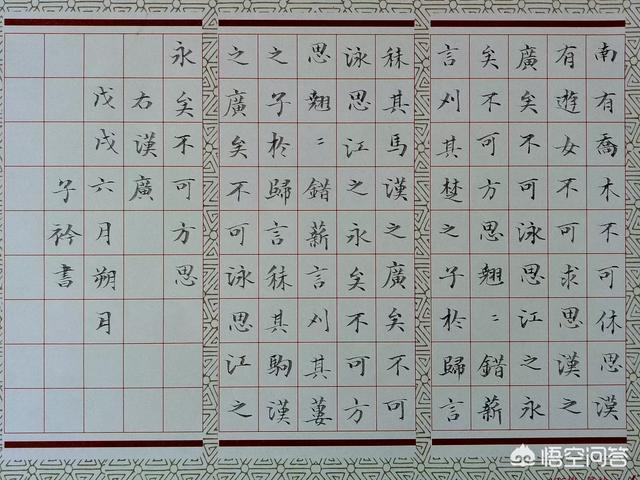 南有喬木不可休思漢
有遊女不可求思漢之
廣矣不可泳思江之永
矣不可方思翹〻錯薪
言刈其楚之子於歸言
秣其馬漢之廣矣不可
泳思江之永矣不可方
思翹〻錯薪言刈其蔞
之子於歸言秣其駒漢
之廣矣不可泳思江之
永矣不可方思
右漢廣
戊戌六月朔月
子衿書
悟空问答